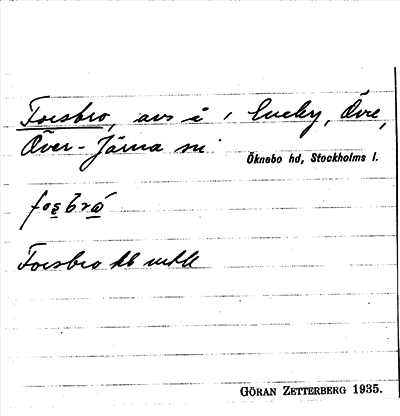 Forsbro, avs i 1 Luckby, Övre,
Över-Järna sn
Öknebo hd, Stockholms l.
fosbro
Forsbro
GÖRAN ZETTERBERG 1935.